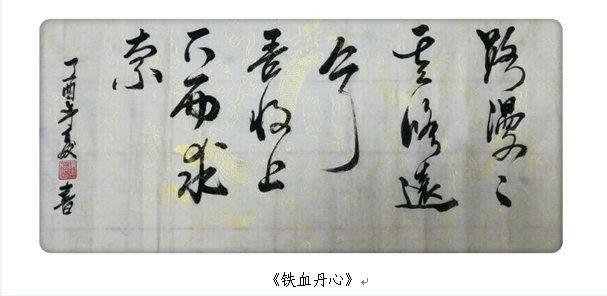 路漫々
其修遠
兮
吾将上
下而求
索
丁酉年夏
书
《铁血丹心》